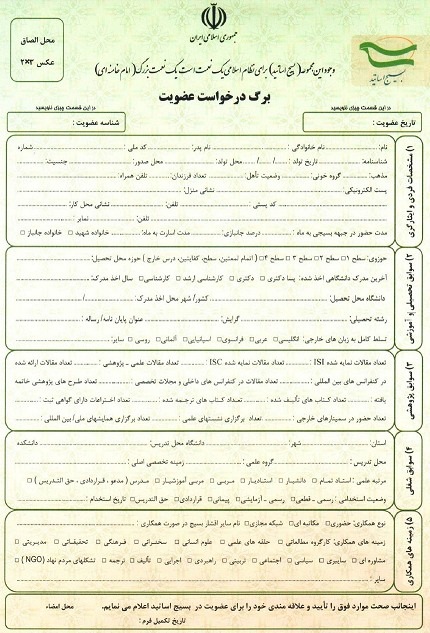 جمهوری اسلامی ایران
محل الصاق
عکس ۳×۲
بسیج اساتید
وجود این مجموعه (بسیج اساتید) برای نظام اسلامی یک نعمت است یک نعمت بزرگ (امام خامنه ای)
برگ درخواست عضویت
در این قسمت چیزی ننویسید
در این قسمت چیزی ننویسید
تاریخ عضویت :
شناسه عضویت :
۱) مشخصات فردی و ایثارگری
نام: نام خانوادگی : نام پدر: کد ملی : شماره
شناسنامه: تاریخ تولد : / / محل تولد: محل صدور: جنسیت:
مذهب: گروه خونی: وضعیت تأهل: تعداد فرزندان: تلفن همراه:
پست الکترونیکی: نشانی منزل:
کد پستی : تلفن: نشانی محل کار:
تلفن: نمابر :
مدت حضور در جبهه بسیجی به ماه : درصد جانبازی: مدت اسارت به ماه: خانواده شهید □ خانواده جانباز □
۲) سوابق تحصیلی و آموزشی
حوزوی: سطح ۱ □ سطح ۲ □ سطح ۳ □ سطح ۴ □ ( اتمام لمعتین، سطح، کفایتین، درس خارج ) حوزه محل تحصیل:
آخرین مدرک دانشگاهی اخذ شده: پسا دکتری □ دکتری □ کارشناسی ارشد □ کارشناسی □ سال اخذ مدرک:
دانشگاه محل تحصیل: کشور/ شهر محل اخذ مدرک: /
رشته تحصیلی: گرایش: عنوان پایان نامه/ رساله :
تسلط کامل به زبان های خارجی: انگلیسی □ عربی □ فرانسوی □ اسپانیایی □ آلمانی □ روسی □ سایر:
۳) سوابق پژوهشی
تعداد مقالات نمایه شده ISI : تعداد مقالات نمایه شده ISC : تعداد مقالات علمی - پژوهشی : تعداد مقالات ارائه شده
در کنفرانس های بین المللی : تعداد مقالات در کنفرانس های داخلی و مجلات تخصصی : تعداد طرح های پژوهشی خاتمه
یافته : تعداد کتاب های تألیف شده : تعداد کتاب های ترجمه شده : تعداد اختراعات دارای گواهی ثبت :
تعداد حضور در سمینارهای خارجی : تعداد برگزاری نشستهای علمی: تعداد برگزاری همایشهای ملی/ بین المللی :
۴) سوابق شغلی
استان: شهر: دانشگاه محل تدریس: دانشکده
محل تدریس : گروه علمی : زمینه تخصصی اصلی :
مرتبه علمی : استاد تمام □ دانشیار □ استادیار □ مربی □ مربی آموزشیار □ مدرس ( مدعو ، قراردادی ، حق التدریس ) □
وضعیت استخدامی : رسمی - قطعی □ رسمی - آزمایشی □ پیمانی □ قراردادی □ حق التدریس □ تاریخ استخدام :
۵) زمینه های همکاری
نوع همکاری: حضوری □ مکاتبه ای □ شبکه مجازی □ نام سایر اقشار بسیج در صورت همکاری :
زمینه های همکاری: کارگروه مطالعاتی □ حلقه های علمی □ علوم انسانی □ سخنرانی □ فرهنگی □ تحقیقاتی □ مدیریتی □
مشاوره ای □ سایبری □ سیاسی □ اجتماعی □ تربیتی □ راهبردی □ اجرایی □ تألیف □ ترجمه □ تشکلهای مردم نهاد (NGO ) □
سایر :
اینجانب صحت موارد فوق را تأیید و علاقه مندی خود را برای عضویت در بسیج اساتید اعلام می نمایم. محل امضاء
تاریخ تکمیل فرم :